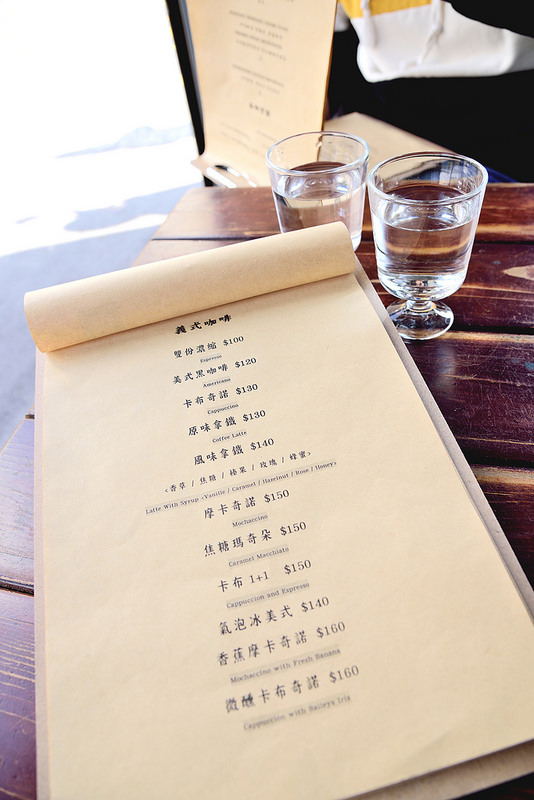 義式咖啡
雙份濃縮 $100
Espresso
美式黑咖啡 $120
Americano
卡布奇諾 $130
Cappuccino
原味拿鐵 $130
Coffee Latte
風味拿鐵 $140
<香草 / 焦糖 / 榛果 / 玫瑰 / 蜂蜜>
Latte With Syrup <Vanille / Caramel / Hazelnut / Rose / Honey>
摩卡奇諾 $150
Mochaccino
焦糖瑪奇朵 $150
Caramel Macchiato
卡布 1+1 $150
Cappuccion and Espresso
氣泡冰美式 $140
香蕉摩卡奇諾 $160
Mochaccino with Fresh Banana
微醺卡布奇諾 $160
Cappuccion with Baileys Iris